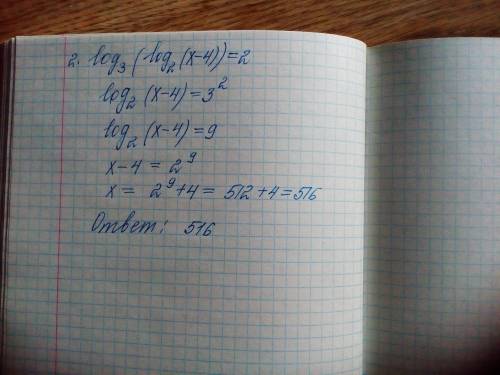 2. log₃(log₂(x-4))=2
log₂(x-4)=3²
log₂(x-4)=9
x-4=2⁹
x= 2⁹+4= 512+4=516
Ответ: 516